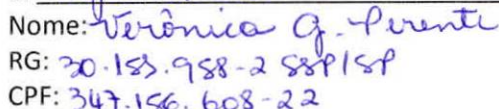 Nome: Verônica G. Perente
RG: 30.153.958-2 SSP/SP
CPF: 347.156.608-22